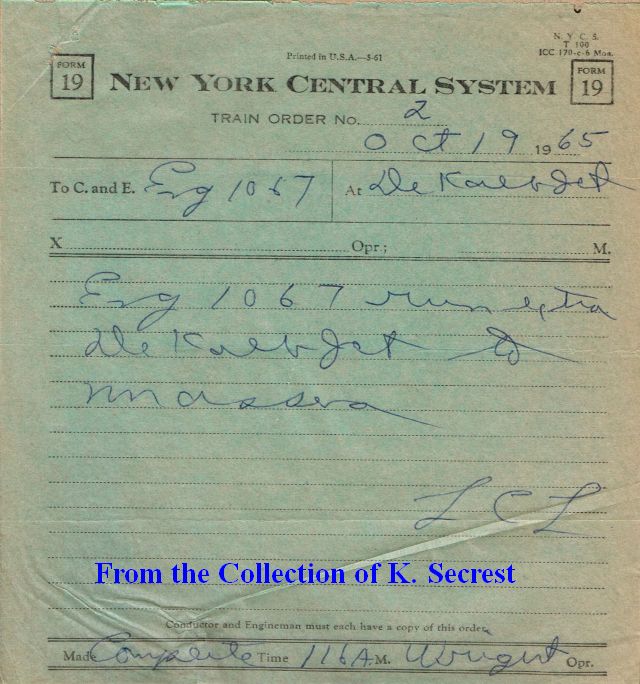 N. Y. C. S.
T 100
ICC 170-c-6 Mos.
Printed in U.S.A.—5-61
FORM
19
NEW YORK CENTRAL SYSTEM
FORM
19
TRAIN ORDER No. 2
Oct 19 1965
To C. and E. Eng 1067 At DeKalb Jct
X Opr; M.
Eng 1067 run extra
DeKalb Jct to
Massena
L C L
From the Collection of K. Secrest
Conductor and Engineman must each have a copy of this order.
Made Complete Time 116 A.M. Wright Opr.